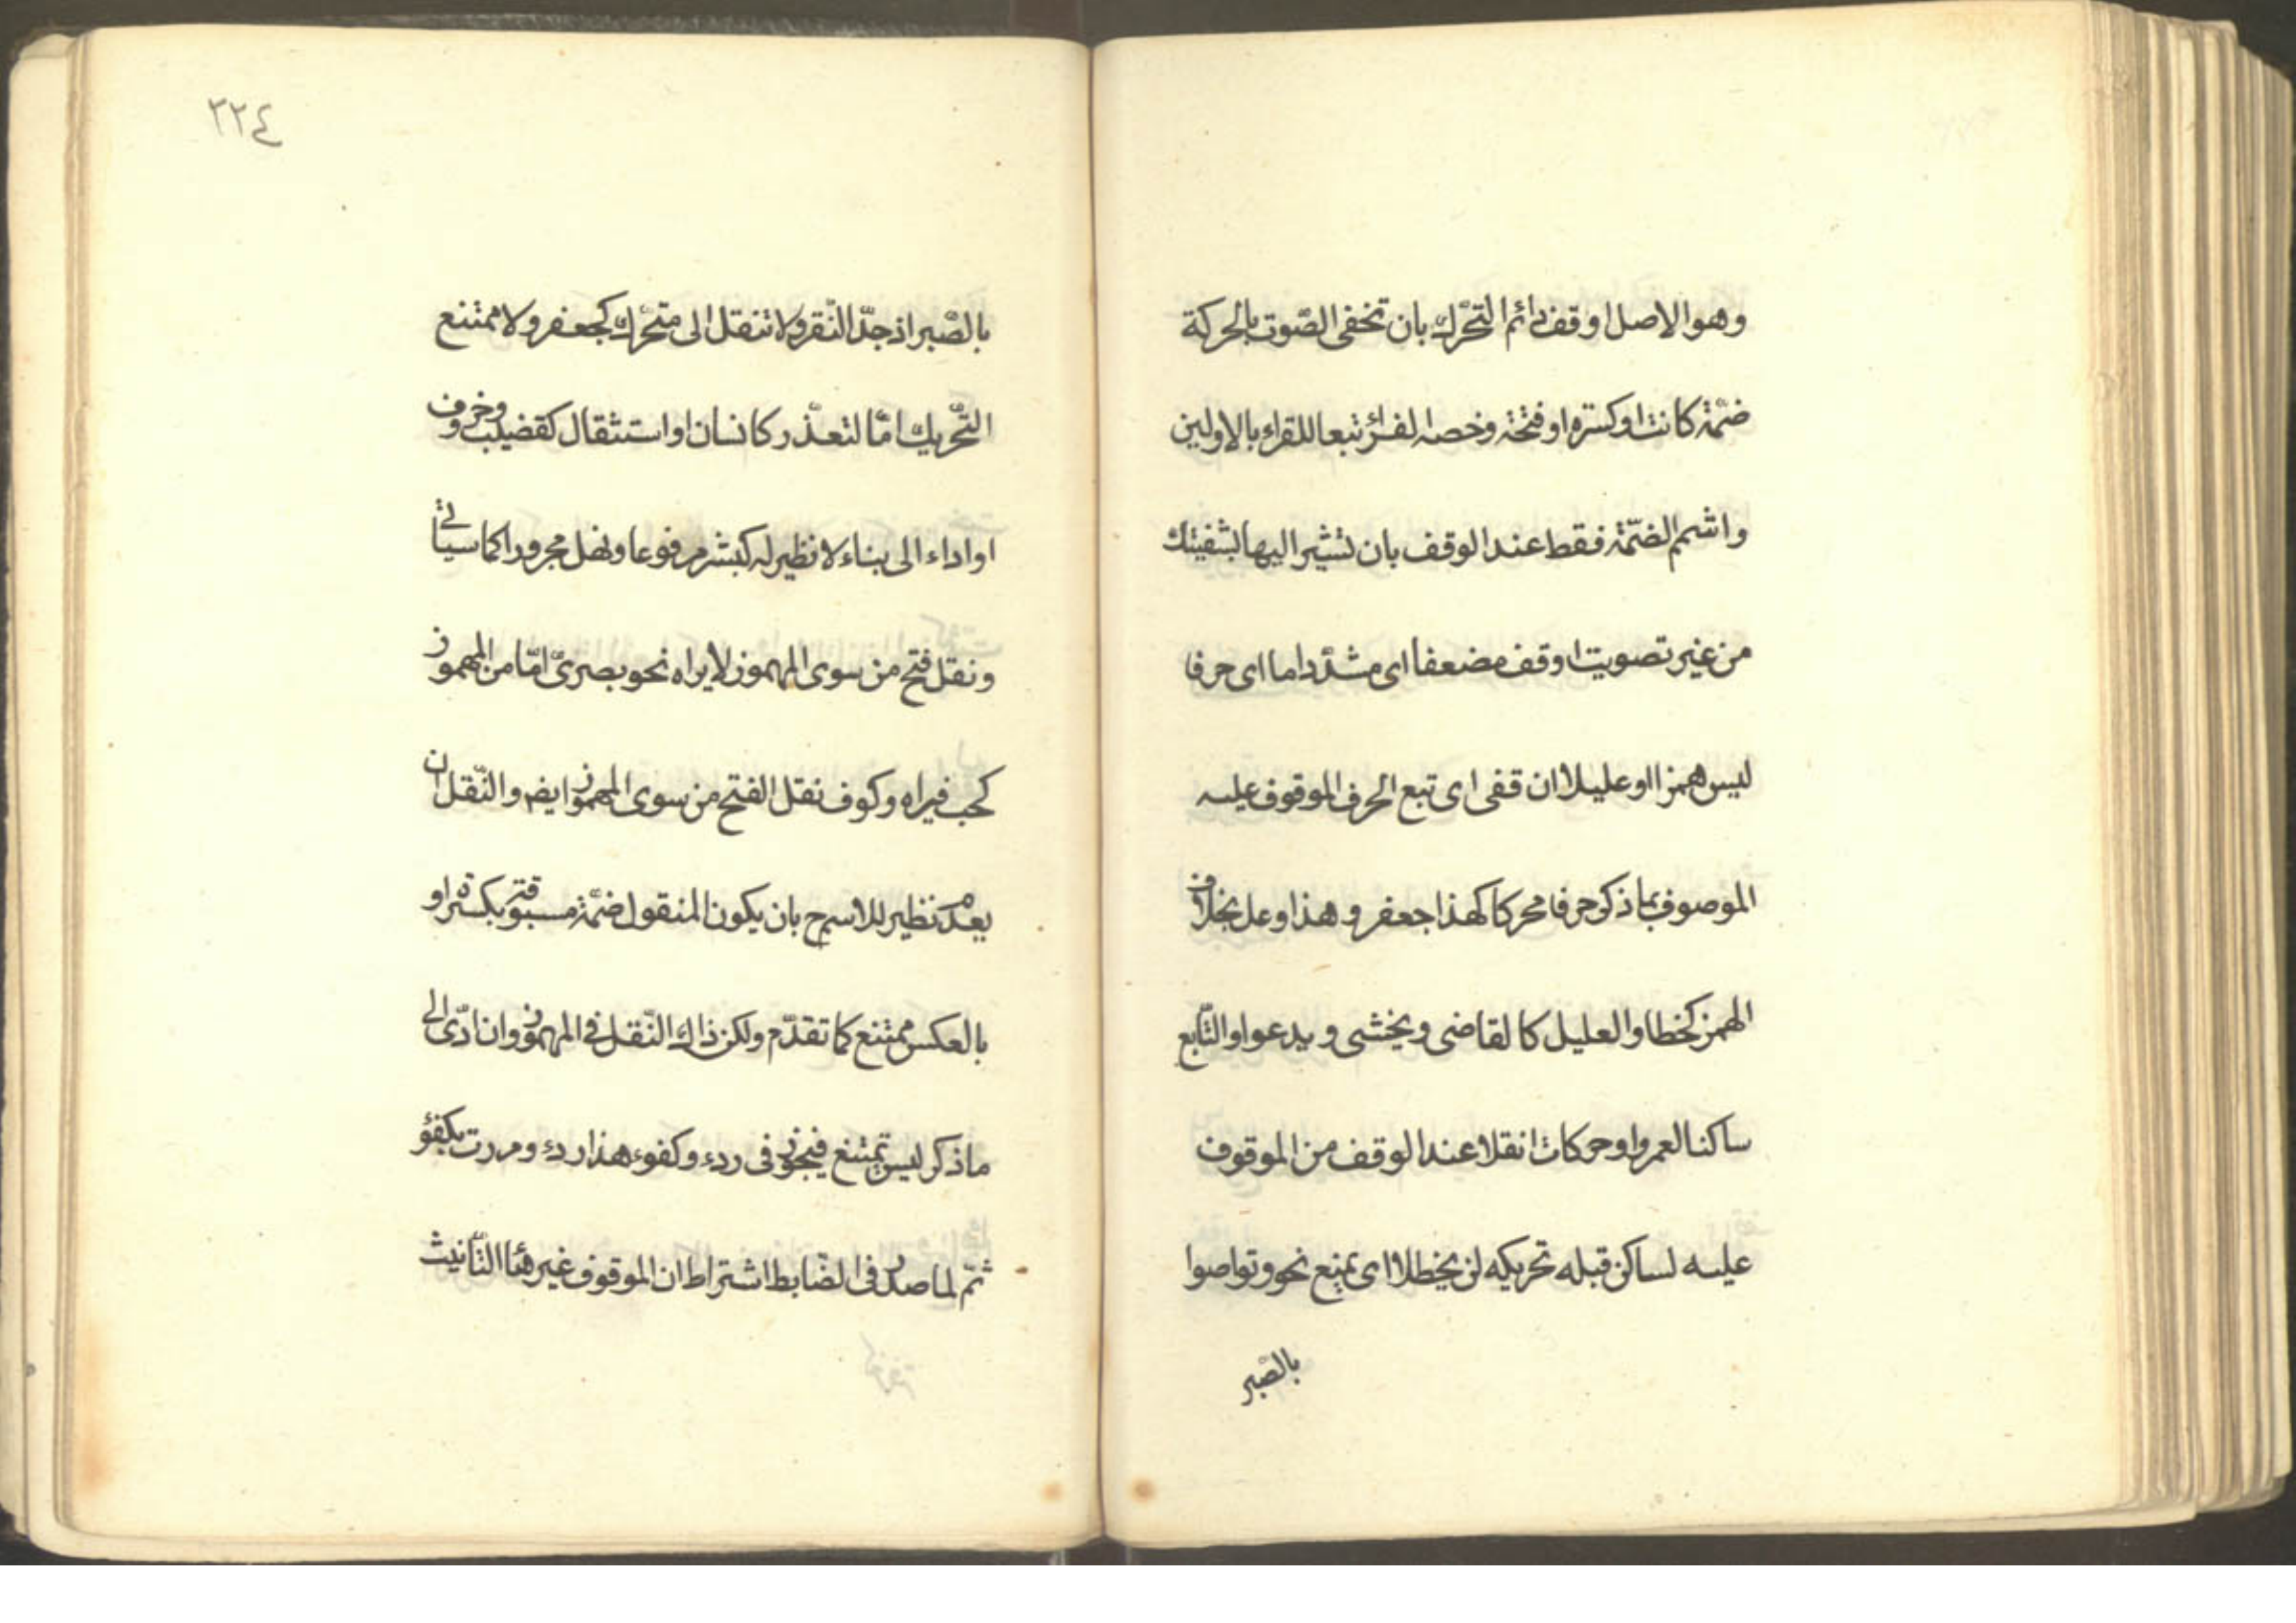 وهو الاصل او قف رائم التحرّك بان تخفى الصّوت بالحركة
ضمّة كانت او كسرة او فتحة وخصه الفرّاء تبعا للقراء بالاولين
واشمم الضّمّة فقط عند الوقف بان تشير اليها بشفيتك
من غير تصويت او قف مضعفا اى مشدّدا ما اى حرفا
ليس همزا او عليلا ان قفى اى تبع الحرف الموقوف عليه
الموصوف بما ذكر حرفا محركا كهذا جعفر و هذا وعل بخلاف
الهمز كخطا والعليل كالقاضى ويخشى و يدعوا والتّابع
ساكنا لعمرو او حركات انقلا عند الوقف من الموقوف
عليه لساكن قبله تحريكه لن يخطلا اى يمنع نحو وتواصوا
بالصّبر
٢٢٤
بالصّبر اذ جدّ النّقر ولا تنقل الى متحرّك كجعفر ولا ممتنع
التّحريك امّا لتعذّر كانسان او استثقال كقضيب وخروف
او اداء الى بناء لا نظير له كبشر مرفوعا وقفل مجرورا كما سياتى
ونقل فتح من سوى المهموز لا يراه نحو بصرىّ امّا من المهموز
كخب فيراه وكوف نقل الفتح من سوى المهموز ايضم والنّقل ان
يعدم نظير للاسم ح بان يكون المنقول ضمّة مسبوقة بكسرة او
بالعكس ممتنع كما تقدّم ولكن ذاك النّقل فى المهموز وان ادّى الى
ما ذكر ليس تمتنع فيجوز فى ردء وكفوء هذا ردء ومررت بكفؤ
ثمّ لما صدر فى الضّابط اشتراط ان الموقوف غير هاء التّانيث